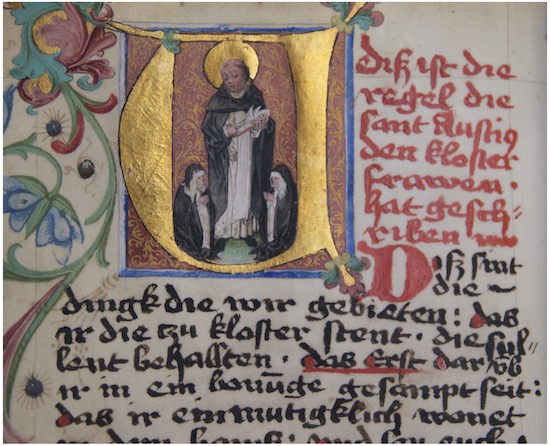 diß ist die
regel die
sant Austi9
den kloster
frawen ·
hat gesch=
riben
Diß sint
die ~
dingk die wir gebieten : das
ir die zu kloster stent · die sul=
lent behallten · das erst dar vb
ir in ein gesampt seit :
das ir einmutigklich wonet
in dem